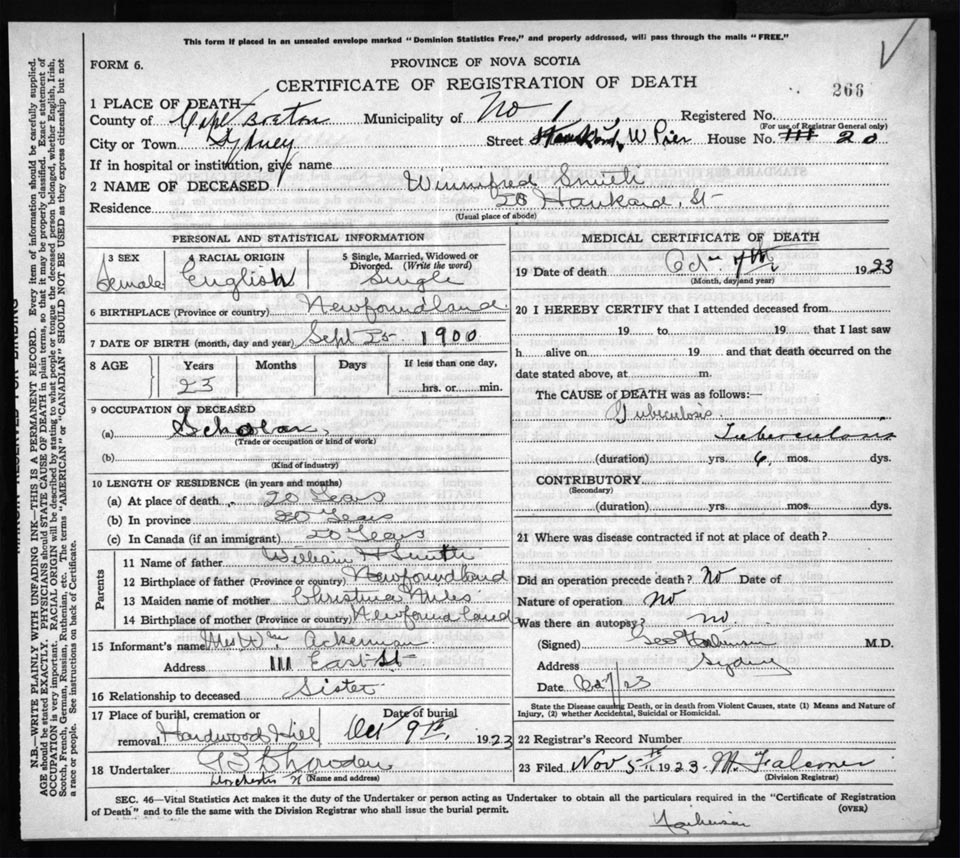 This form if placed in an unsealed envelope marked "Dominion Statistics Free," and properly addressed, will pass through the mails "FREE."
FORM 6.
PROVINCE OF NOVA SCOTIA
CERTIFICATE OF REGISTRATION OF DEATH
266
1 PLACE OF DEATH—
County of Cape Breton Municipality of No 1 Registered No.
(For use of Registrar General only)
City or Town Sydney Street W Pier House No. 20
If in hospital or institution, give name
2 NAME OF DECEASED Winnifred Smith
Residence 20 Hankard, St
(Usual place of abode)
PERSONAL AND STATISTICAL INFORMATION
3 SEX 4 RACIAL ORIGIN 5 Single, Married, Widowed or Divorced. (Write the word)
Female English Single
6 BIRTHPLACE (Province or country) Newfoundland
7 DATE OF BIRTH (month, day and year) Sept 25 1900
8 AGE Years Months Days If less than one day,
23 hrs. or min.
9 OCCUPATION OF DECEASED
(a) Scholar
(Trade or occupation or kind of work)
(b)
(Kind of industry)
10 LENGTH OF RESIDENCE (in years and months)
(a) At place of death 20 Years
(b) In province 20 Years
(c) In Canada (if an immigrant) 20 Years
Parents
11 Name of father William H Smith
12 Birthplace of father (Province or country) Newfoundland
13 Maiden name of mother Christina
14 Birthplace of mother (Province or country) Newfoundland
15 Informant's name Mrs Wm Ackerman
Address 111 East St
16 Relationship to deceased Sister
17 Place of burial, cremation or Date of burial
removal Hardwood Hill Oct 9th, 1923
18 Undertaker
(Name and address)
MEDICAL CERTIFICATE OF DEATH
19 Date of death Oct 7th 1923
(Month, day and year)
20 I HEREBY CERTIFY that I attended deceased from
19 to 19 that I last saw
h alive on 19 and that death occurred on the
date stated above, at m.
The CAUSE of DEATH was as follows:
Tuberculosis
Tuberculosis
(duration) yrs. 6 mos. dys.
CONTRIBUTORY
(Secondary)
(duration) yrs. mos. dys.
21 Where was disease contracted if not at place of death?
Did an operation precede death? No Date of
Nature of operation No
Was there an autopsy? no
(Signed) Geo M.D.
Address Sydney
Date Oct 7/23
State the Disease causing Death, or in death from Violent Causes, state (1) Means and Nature of
Injury, (2) whether Accidental, Suicidal or Homicidal.
22 Registrar's Record Number
23 Filed Nov 5th 1923 Falconer
(Division Registrar)
SEC. 46—Vital Statistics Act makes it the duty of the Undertaker or person acting as Undertaker to obtain all the particulars required in the "Certificate of Registration
of Death" and to file the same with the Division Registrar who shall issue the burial permit.
(OVER)
MARGIN RESERVED FOR BINDING
N.B.—WRITE PLAINLY WITH UNFADING INK—THIS IS A PERMANENT RECORD. Every item of information should be carefully supplied.
AGE should be stated EXACTLY. PHYSICIANS should STATE CAUSE OF DEATH in plain terms, so that it may be properly classified. Exact statement of
OCCUPATION is very important. RACIAL ORIGIN will be described by stating to what people or tongue the deceased person belonged, whether English, Irish,
Scotch, French, German, Russian, Ruthenian, etc. The terms "AMERICAN" or "CANADIAN" SHOULD NOT BE USED as they express citizenship but not
a race or people. See instructions on back of Certificate.